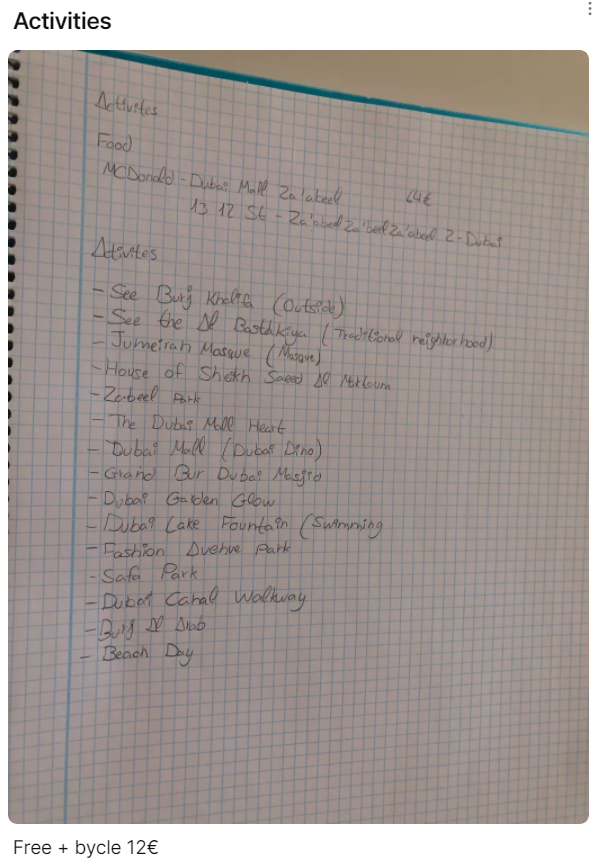 Activities
Activites
Food
MCDonald - Dubai Mall Za'abeel 64€
13 12 St - Za'abeel Za'beel Za'abeel 2 - Dubai
Activites
- See Burj Khalifa (Outside)
- See the Al Basthkiya (Traditional neighborhood)
- Jumeirah Mosque (Mosque)
- House of Sheikh Saeed Al Maktoum
- Zabeel Park
- The Dubai Mall Heart
- Dubai Mall (Dubai Dino)
- Grand Bur Dubai Masjid
- Dubai Garden Glow
- Dubai Lake Fountain (Swimming
- Fashion Avenue Park
- Safa Park
- Dubai Canal Walkway
- Burj Al Arab
- Beach Day
Free + bycle 12€